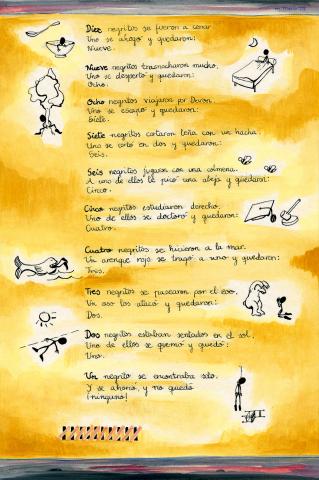 Diez negritos se fueron a cenar.
Uno se ahogó y quedaron:
Nueve.
Nueve negritos trasnocharon mucho.
Uno se despertó y quedaron:
Ocho.
Ocho negritos viajaron por Devon.
Uno se escapó y quedaron:
Siete.
Siete negritos cortaron leña con un hacha.
Uno se cortó en dos y quedaron:
Seis.
Seis negritos jugaron con una colmena.
A uno de ellos le picó una abeja y quedaron:
Cinco.
Cinco negritos estudiaron derecho.
Uno de ellos se doctoró y quedaron:
Cuatro.
Cuatro negritos se hicieron a la mar.
Un arenque rojo se tragó a uno y quedaron:
Tres.
Tres negritos se pasearon por el zoo.
Un oso los atacó y quedaron:
Dos.
Dos negritos estaban sentados en el sol.
Uno de ellos se quemó y quedó:
Uno.
Un negrito se encontraba solo.
Y se ahorcó, y no quedó
¡ninguno!